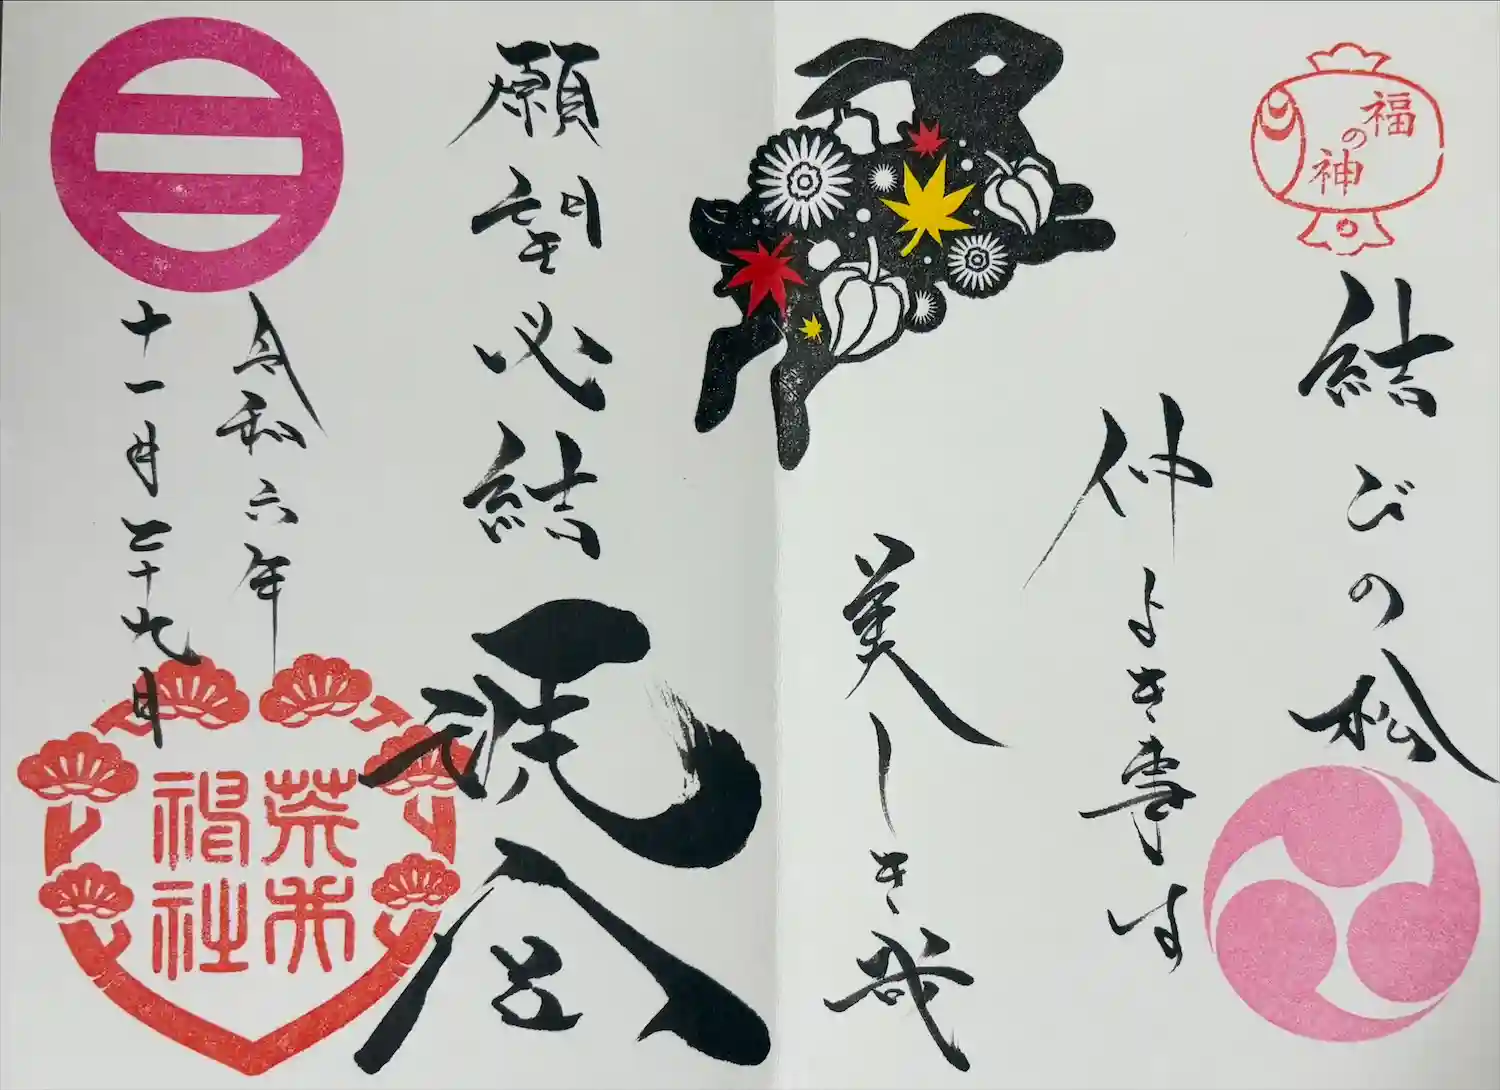 福の神
結びの松
仲よき事は
美しき哉
願望必結
令和六年
十一月二十九日
荒井
神社